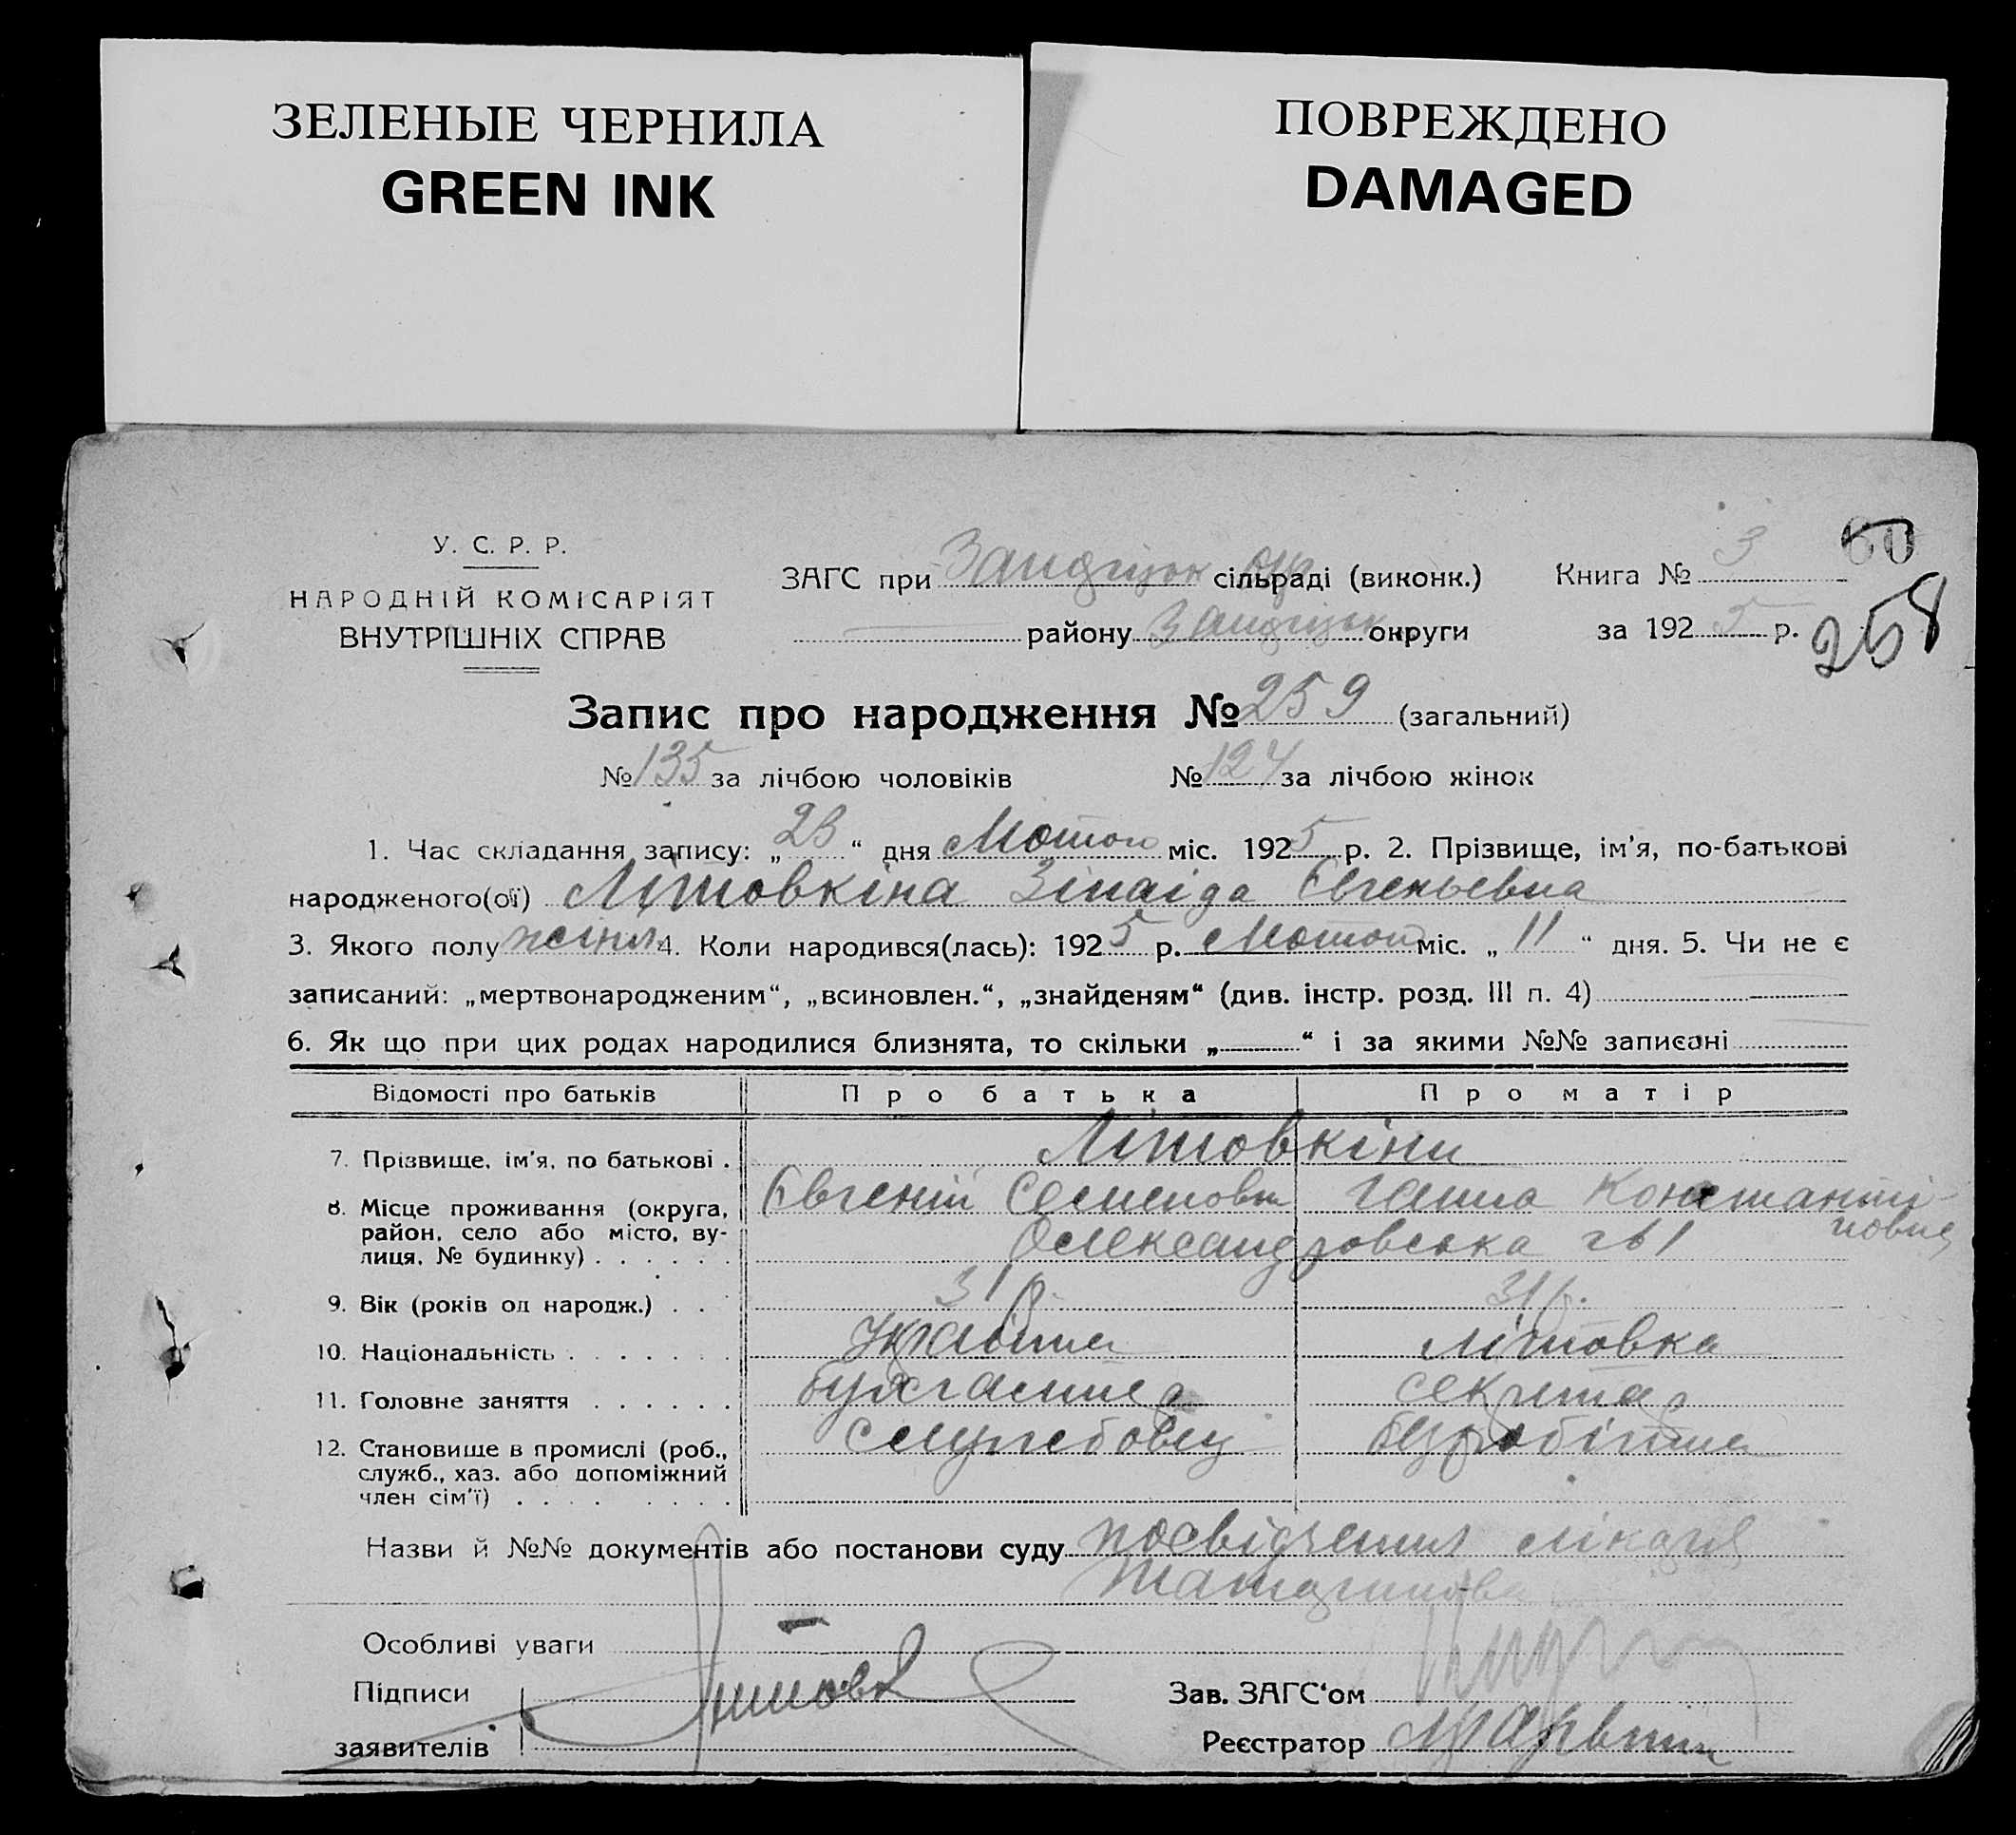 ЗЕЛЕНЫЕ ЧЕРНИЛА
GREEN INK
ПОВРЕЖДЕНО
DAMAGED
У. С. Р. Р.
НАРОДНІЙ КОМІСАРІЯТ
ВНУТРІШНІХ СПРАВ
ЗАГС при сільраді (виконк.)
району округи
Книга № 3
за 1925 р.
60
258
Запис про народження № 259 (загальний)
№ 135 за лічбою чоловіків № 124 за лічбою жінок
1. Час складання запису: „23“ дня Лютого міс. 1925 р. 2. Прізвище, ім'я, по-батькові
народженого(ої) Літовкіна Зінаіда Євгеньевна
3. Якого полу жіноч. 4. Коли народився(лась): 1925 р. Лютого міс. „11“ дня. 5. Чи не є
записаний: „мертвонародженим“, „всиновлен.“, „знайденям“ (див. інстр. розд. III п. 4)
6. Як що при цих родах народилися близнята, то скільки „ “ і за якими №№ записані
Відомості про батьків Про батька Про матір
7. Прізвище, ім'я, по батькові . Літовкіни
8. Місце проживання (округа, Євгеній Семенович Ганна Константі-
район, село або місто, ву- новна
лиця, № будинку) . . . . . . Олександровська 261
9. Вік (років од народж.) . . . 31 р. 31 р.
10. Національність . . . . . . . Українец літовка
11. Головне заняття . . . . . . бухгалтер секритар
12. Становище в промислі (роб., служебовец
служб., хаз. або допоміжний
член сім'ї) . . . . . . . . .
Назви й №№ документів або постанови суду посвідчення лікаря
Особливі уваги —
Підписи
заявителів
Зав. ЗАГС'ом
Реєстратор